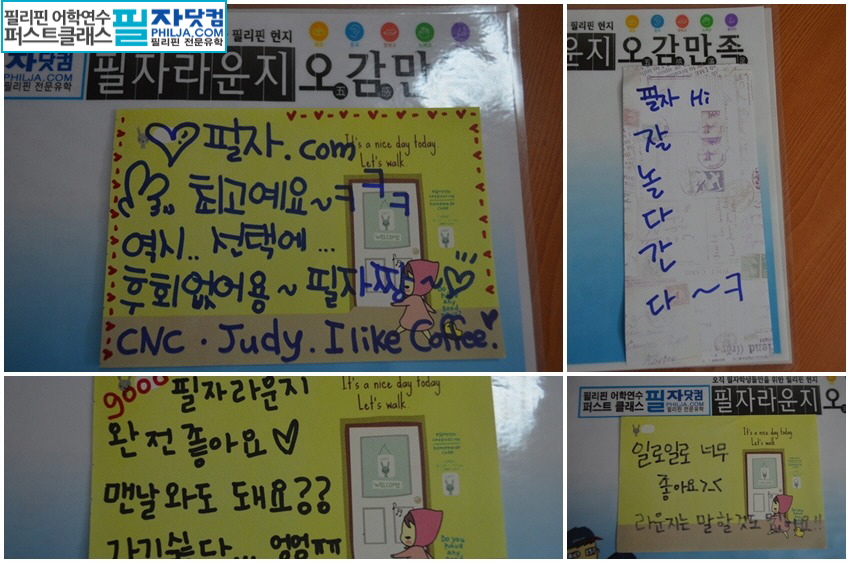 필리핀 어학연수
퍼스트클래스
필자닷컴
PHILJA.COM
필리핀 전문유학
필리핀 현지
필자라운지 오감만
五 感
팔자.com
It's a nice day today.
Let's walk.
최고예요~ㅋㅋㅋ
역시.. 선택에 ...
후회없어용~ 필자짱~
WELCOME
CNC. Judy. I like Coffee.
필리핀 현지
라운지 오감만족
필자 Hi
잘
놀
다
간
다~ㅋ
gooo
필자라운지
It's a nice day today
Let's walk.
완전좋아요♡
맨날와도 돼요??
WELCOME
가기싫다... 엉엉ㅠㅠ
Do you
have any
오직 필자학생들만을 위한 필리핀 현지
필리핀 어학연수
퍼스트 클래스
필자닷컴
PHILJA.COM
필리핀 전문유학
필자라운지 오
It's a nice day today.
Let's walk
일로일로 너무
좋아요>.<
라운지는 말할것도 없어요!!